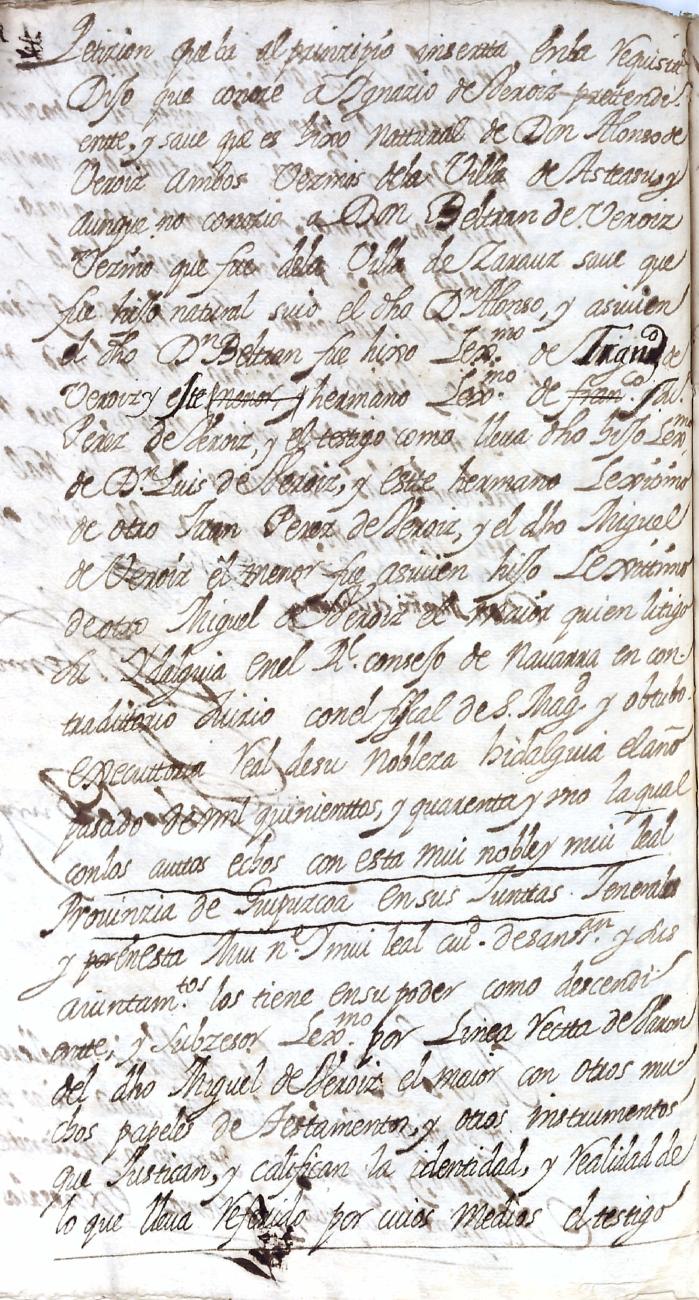 Petizion que ba al principio insertta en la requisita
Dijo que conoze a Ygnazio de Veroiz pretendi
ente, y save que es hixo nattural de Don Alonso de
Veroiz ambos Vezinos de la Villa de Asteasu, y
aunque no conozio a Don Beltran de Veroiz
Vezino que fue de la Villa de Zarauz save que
fue hijo natural suio el dho Dn Alonso, y asivien
el dho Dn Beltran fue hixo Lexmo de Franco de
Veroiz y este menor, y hermano Lexmo de franco Jul
Pérez de Veroiz, y el testigo como lleva dho hijo Lexmo
de Dn Luis de Veroiz, y estte hermano Lexitimo
de otro Juan Perez de Veroiz, y el dho Miguel
de Veroiz el menor fue asivien hijo Lexittimo
de otro Miguel de Veroiz el maior quien litigo
su Ydalguia en el Rl. consejo de Navarra en con-
traditorio Juizio con el fiscal de S. Magd. y obtubo
executtoria real de su Nobleza hidalguia el año
pasado de mil quinienttos, y quarenta y uno la qual
con los auttos echos con esta mui noble y mui leal
Provinzia de Guipuzcoa en sus Junttas Jenerales
y por en esta Mui n.e I mui leal ciud. de San Sn. y sus
aiuntam.tos los tiene en su poder como descendi
ente, y subzesor Lexmo por Linea rectta de Varon
del dho Miguel de Veroiz el maior con otros mu
chos papeles de testamentos, y otros instrumentos
que Justican, y califican la identidad, y realidad de
lo que lleva referido por cuios medios el testigo